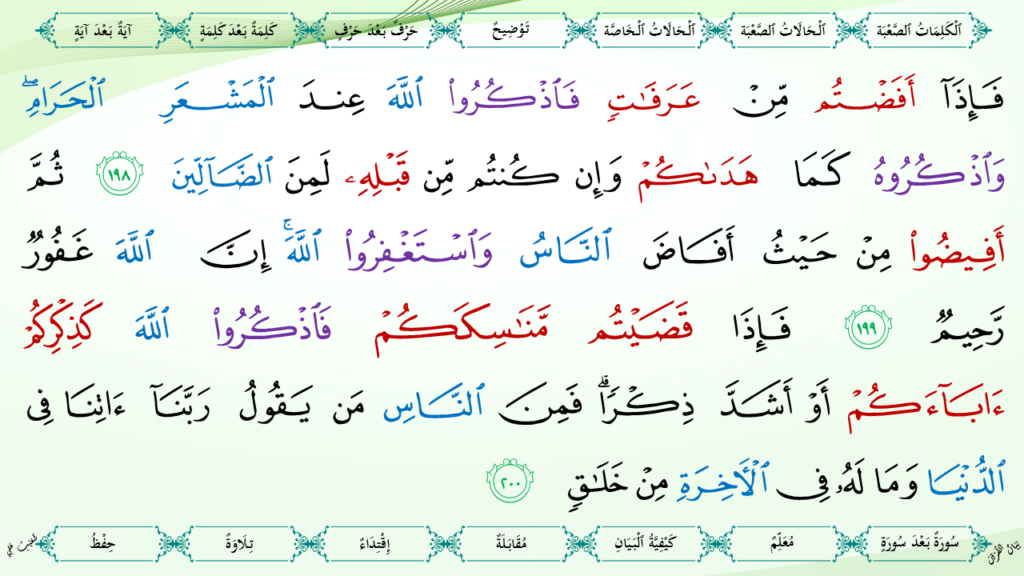 اَلْكَلِمَاتُ الصَّعْبَة اَلْحَالَاتُ الصَّعْبَة اَلْحَالَاتُ الْخَاصَّة تَوْضِيحٌ حَرْفٌ بَعْدَ حَرْفٍ كَلِمَةٌ بَعْدَ كَلِمَةٍ آيَةٌ بَعْدَ آيَةٍ
فَإِذَآ أَفَضْتُم مِّنْ عَرَفَٰتٍ فَٱذْكُرُوا۟ ٱللَّهَ عِندَ ٱلْمَشْعَرِ ٱلْحَرَامِۖ
وَٱذْكُرُوهُ كَمَا هَدَىٰكُمْ وَإِن كُنتُم مِّن قَبْلِهِۦ لَمِنَ ٱلضَّآلِّينَ ١٩٨ ثُمَّ
أَفِيضُوا۟ مِنْ حَيْثُ أَفَاضَ ٱلنَّاسُ وَٱسْتَغْفِرُوا۟ ٱللَّهَۚ إِنَّ ٱللَّهَ غَفُورٌ
رَّحِيمٌ ١٩٩ فَإِذَا قَضَيْتُم مَّنَٰسِكَكُمْ فَٱذْكُرُوا۟ ٱللَّهَ كَذِكْرِكُمْ
ءَابَآءَكُمْ أَوْ أَشَدَّ ذِكْرًاۗ فَمِنَ ٱلنَّاسِ مَن يَقُولُ رَبَّنَآ ءَاتِنَا فِى
ٱلدُّنْيَا وَمَا لَهُۥ فِى ٱلْأَخِرَةِ مِنْ خَلَٰقٍ ٢٠٠
سُورَةٌ بَعْدَ سُورَةٍ مُعَلِّمٌ كَيْفِيَّةُ الْبَيَانِ مُقَابَلَةٌ إِقْتِدَاءٌ تِلَاوَةٌ حِفْظٌ